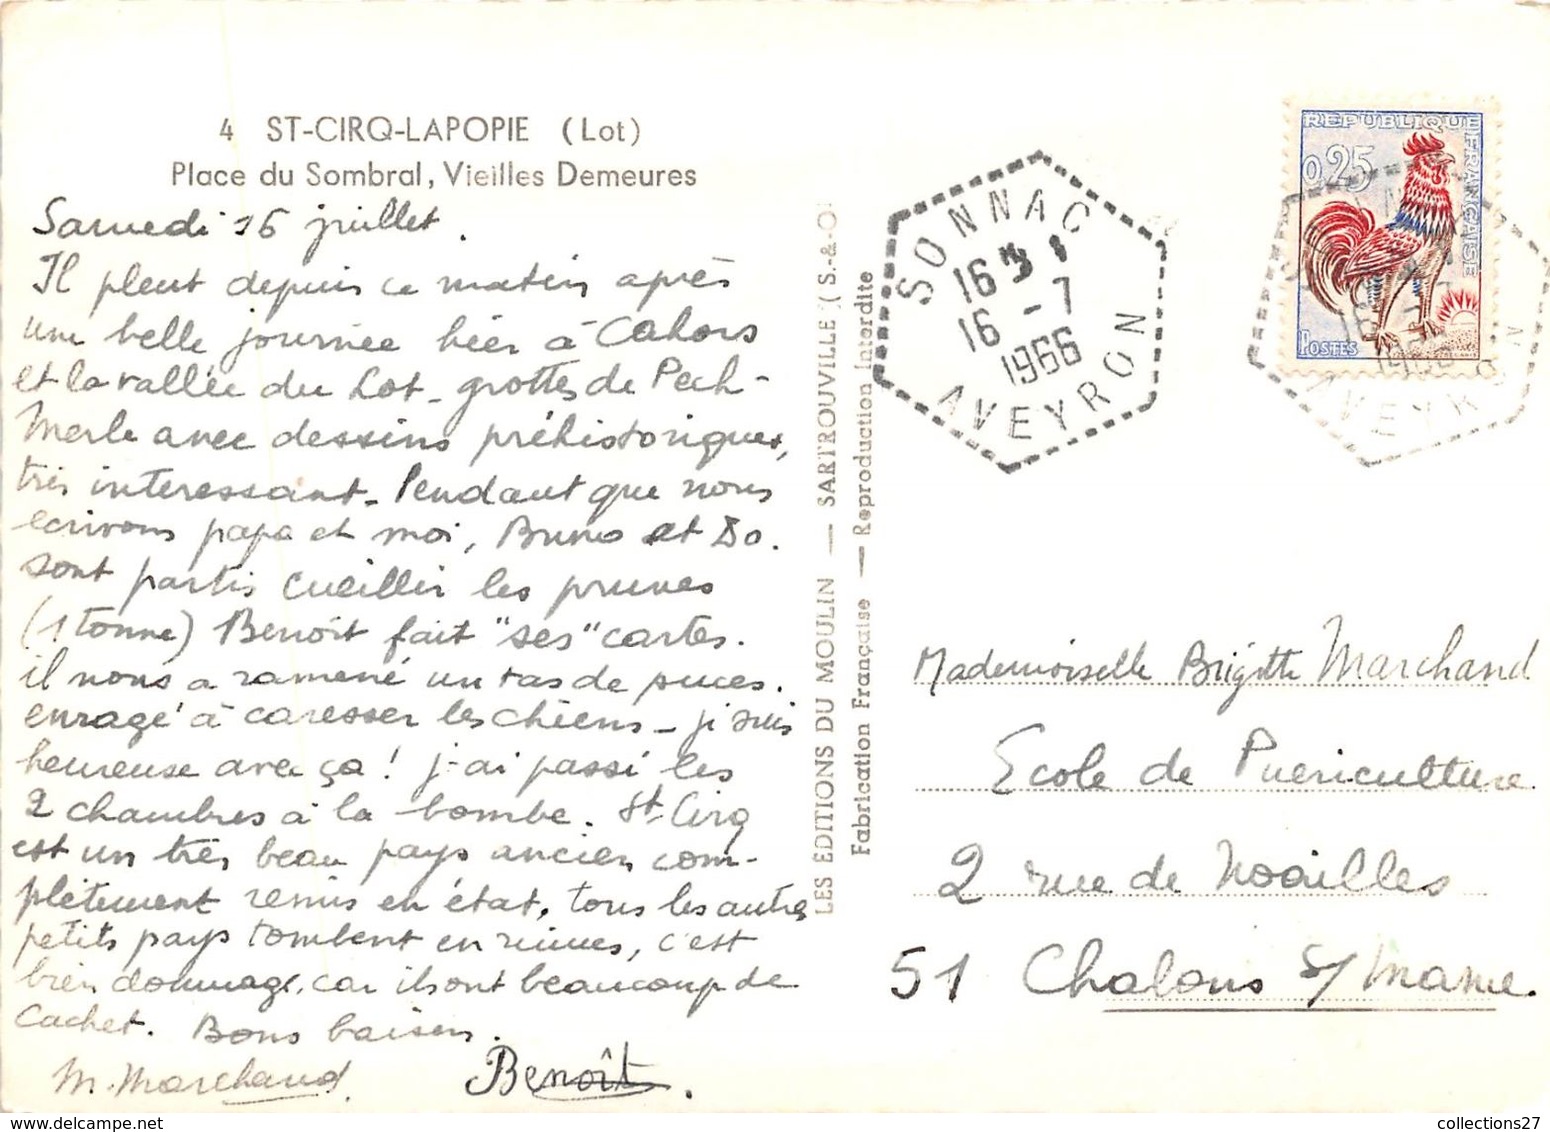 4 ST-CIRQ-LAPOPIE (Lot)
Place du Sombral, Vieilles Demeures
Samedi 16 juillet.
Il pleut depuis ce matin après
une belle journée hier à Cahors
et la vallée du Lot - grottes de Pech-
Merle avec dessins préhistoriques,
très interessant - Pendant que nous
ecrivons papa et moi, Bruno et Do.
sont partis cueillir les prunes
(1 tonne) Benoît fait "ses" cartes.
il nous a ramené un tas de puces.
enragé à caresser les chiens - je suis
heureuse avec ça ! j'ai passé les
2 chambres à la bombe. St-Cirq
est un très beau pays ancien com-
plètement remis en état, tous les autres
petits pays tombent en ruines, c'est
bien dommage, car ils ont beaucoup de
cachet. Bons baisers.
M. Marchand Benoît.
LES EDITIONS DU MOULIN — SARTROUVILLE (S.-&-O.
Fabrication Française — Reproduction interdite
SONNAC
16
16 - 7
1966
AVEYRON
REPUBLIQUE FRANÇAISE
0,25
POSTES
16
1966
AVEYRON
Mademoiselle Brigitte Marchand
Ecole de Puericulture
2 rue de Noailles
51 Chalons s/ Marne.
collections27